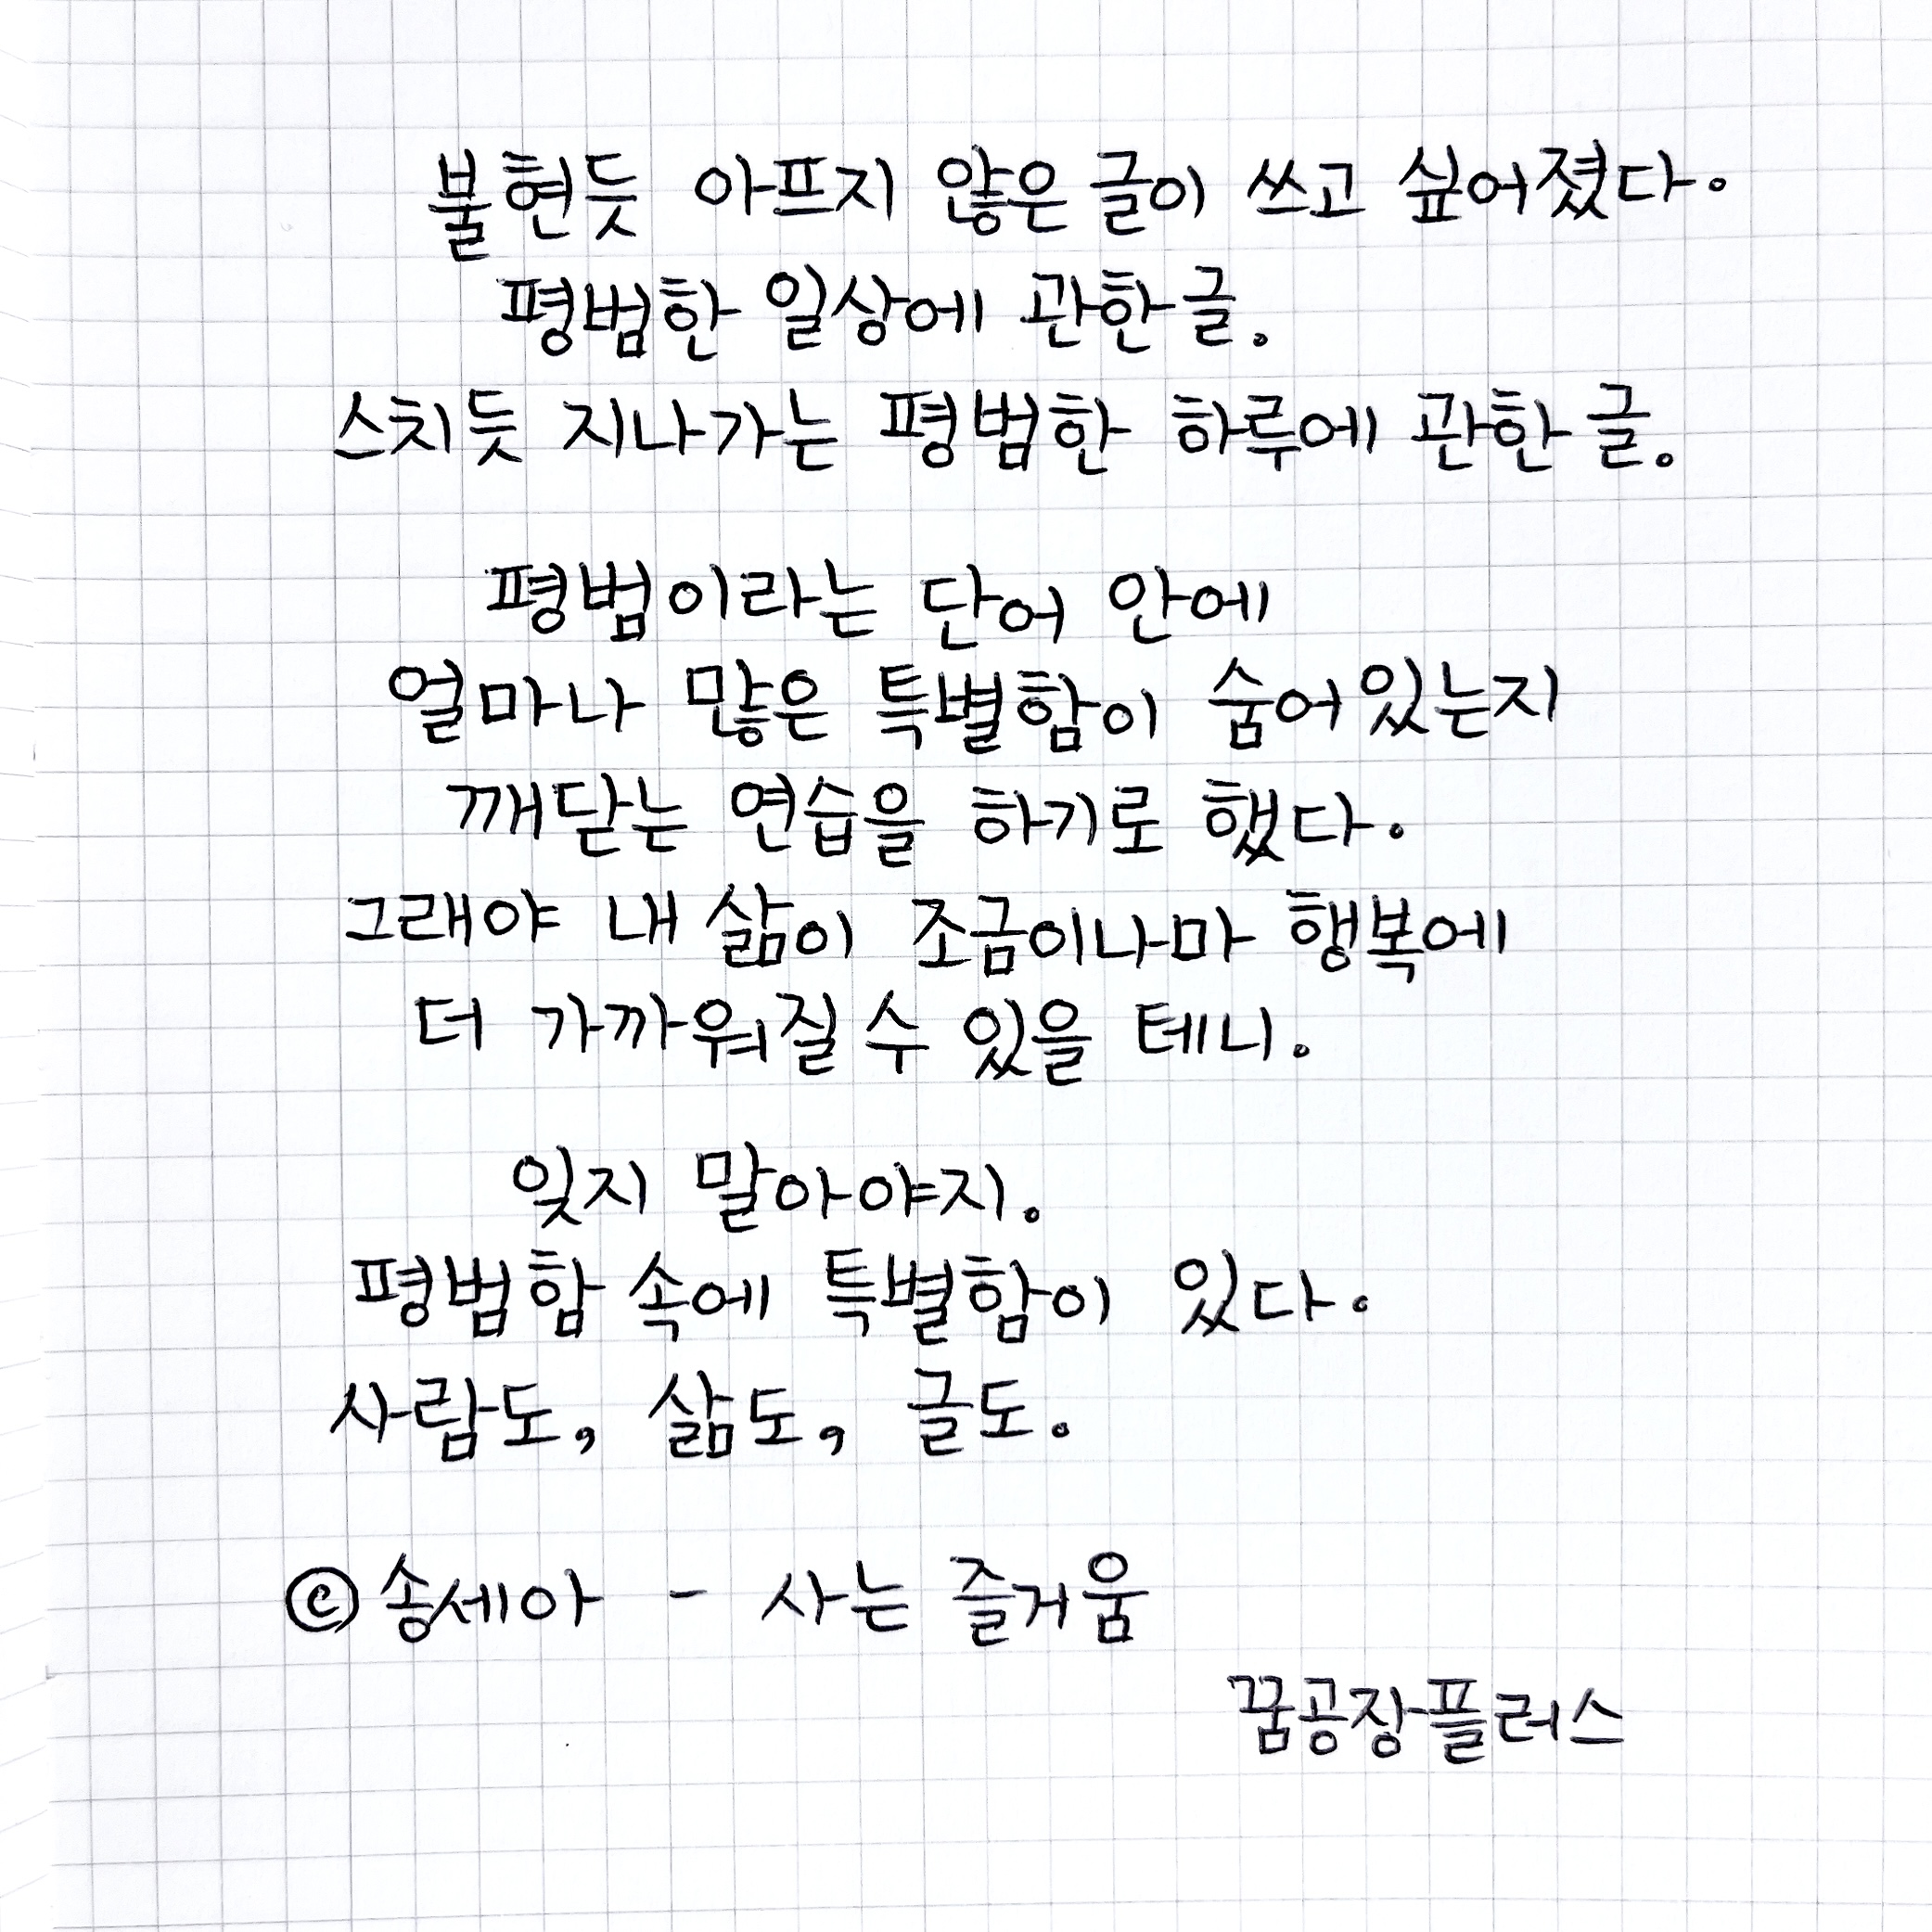 불현듯 아프지 않은 글이 쓰고 싶어졌다.
평범한 일상에 관한 글.
스치듯 지나가는 평범한 하루에 관한 글.
평범이라는 단어 안에
얼마나 많은 특별함이 숨어있는지
깨닫는 연습을 하기로 했다.
그래야 내 삶이 조금이나마 행복에
더 가까워질 수 있을 테니.
잊지 말아야지.
평범함 속에 특별함이 있다.
사람도, 삶도, 글도.
ⓒ송세아 - 사는 즐거움
꿈공장플러스